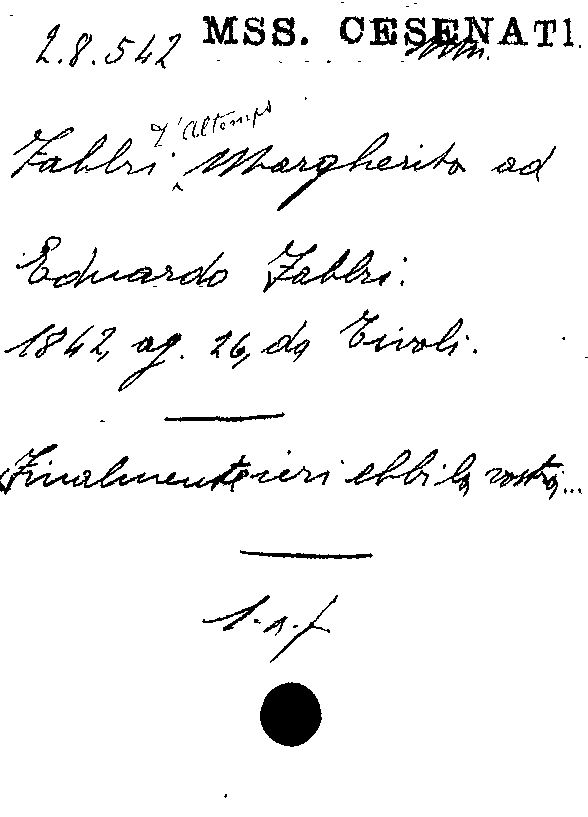 2.8.542 MSS. CESENATI.
D'Altemps
Fabbri Margherita ad
Eduardo Fabbri.
1842, ag. 26, da Tivoli.
Finalmente ieri ebbi la vostra...